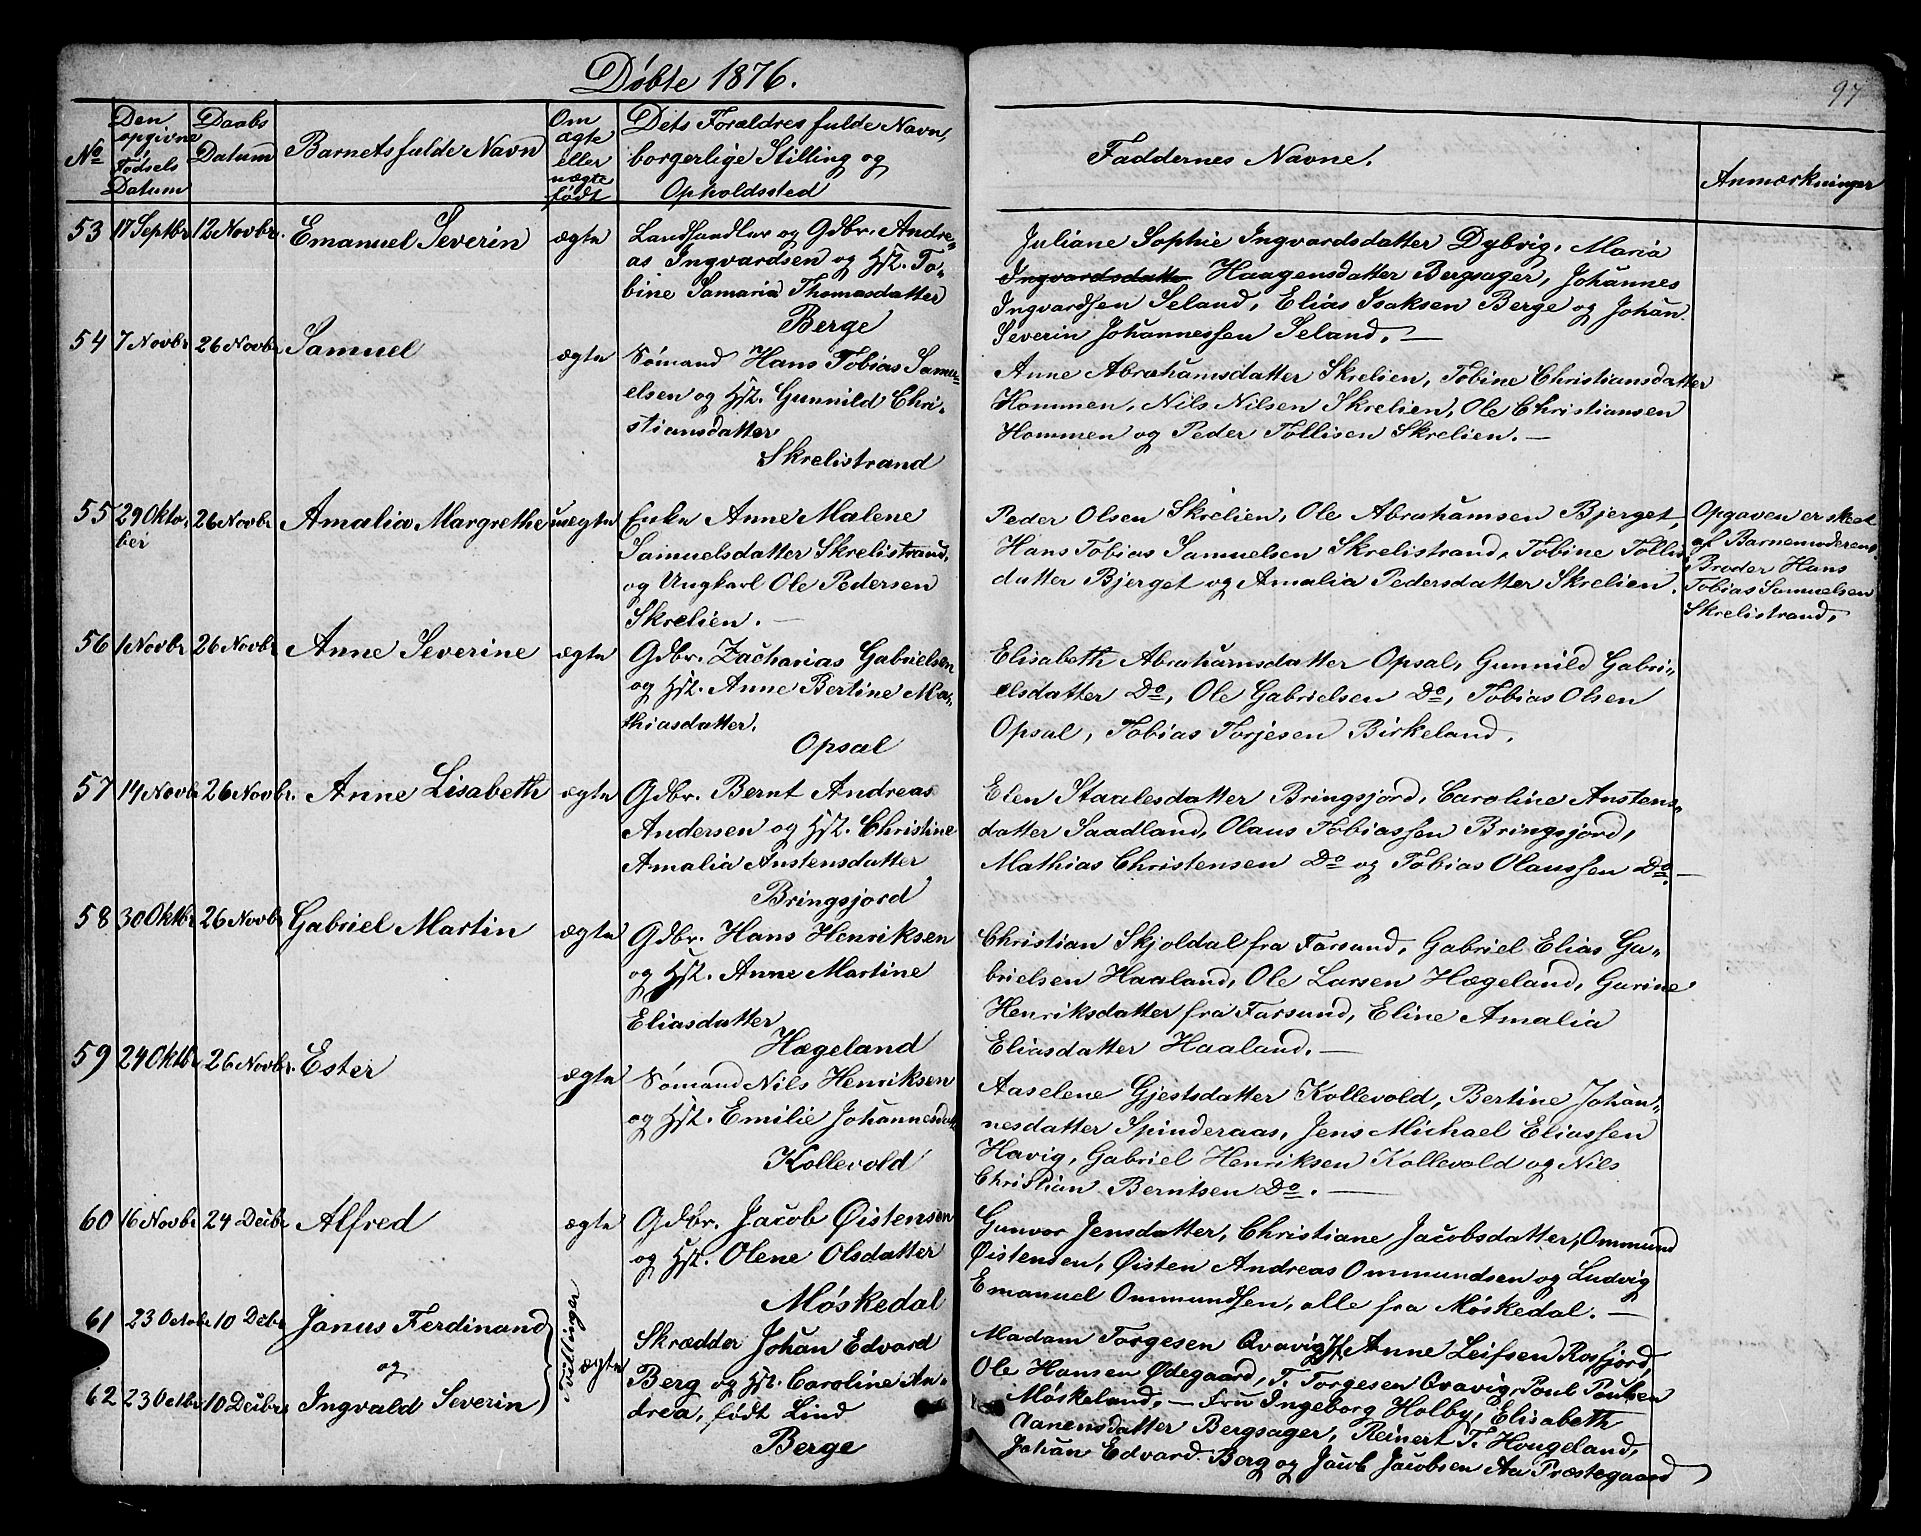 Døbte 1876.
97
No
Den opgivne Fødsels Datum
Daabs Datum
Barnets fulde Navn
Om ægte eller uægte født
Dets Forældres fulde Navn, borgerlige Stilling og Opholdssted
Faddernes Navne.
Anmærkninger
53 17 Septbr 12 Novbr. Emanuel Severin ægte
Landhandler og Gdbr. Andre-
as Ingvardsen og Hst. To-
bine Samaria Thomasdatter
Berge
Juliane Sophie Ingvardsdatter Dybvig, Maria
Ingvardsdatt Haagensdatter Bergsager, Johannes
Ingvardsen Seland, Elias Isaksen Berge og Johan
Severin Johannessen Seland. —
54 7 Novbr 26 Novbr Samuel ægte
Sømand Hans Tobias Samu-
elsen og Hst. Gunnild Chri-
stiansdatter
Skrelistrand
Anne Abrahamsdatter Skrelien, Tobine Christiansdatter
Hommen, Nils Nilsen Skrelien, Ole Christiansen
Hommen og Peder Tollisen Skrelien. —
55 29 Okto- 26 Novbr Amalia Margrethe uægte
ber
Enke Anne Malene
Samuelsdatter Skrelistrand,
og Ungkarl Ole Pedersen
Skrelien. —
Peder Olsen Skrelien, Ole Abrahamsen Bjerget,
Hans Tobias Samuelsen Skrelistrand, Tobine Tollis
datter Bjerget og Amalia Pedersdatter Skrelien.
Opgaven er skeet
af Barnemoderens
Broder Hans
Tobias Samuelsen
Skrelistrand,
56 1 Novbr 26 Novbr Anne Severine ægte
Gdbr. Zacharias Gabrielsen
og Hst. Anne Bertine Ma-
thiasdatter.
Opsal
Elisabeth Abrahamsdatter Opsal, Gunnild Gabri-
elsdatter Do, Ole Gabrielsen Do, Tobias Olsen
Opsal, Tobias Torjesen Birkeland.
57 14 Novbr 26 Novbr. Anne Lisabeth ægte
Gdbr. Bernt Andreas
Andersen og Hst. Christine
Amalia Anstensdatter
Bringsjord
Elen Staalesdatter Bringsjord, Caroline Anstens-
datter Saadland, Olaus Tobiassen Bringsjord,
Mathias Christensen Do og Tobias Olaussen Do. —
58 30 Oktbr 26 Novbr Gabriel Martin ægte
Gdbr. Hans Henriksen
og Hst. Anne Martine
Eliasdatter
Hægeland
Christian Skjoldal fra Farsund, Gabriel Elias Ga-
brielsen Haaland, Ole Larsen Hægeland, Gurine
Henriksdatter fra Farsund, Eline Amalia
Eliasdatter Haaland. —
59 24 Oktbr 26 Novbr. Ester ægte
Sømand Nils Henriksen
og Hst. Emilie Johannesdatt
Kollevold
Aaselene Gjestsdatter Kollevold, Bertine Johan-
nesdatter Spinderaas, Jens Michael Eliassen
Havig, Gabriel Henriksen Kollevold og Nils
Christian Berntsen Do. —
60 16 Novbr 24 Decbr Alfred ægte
Gdbr. Jacob Øistensen
og Hst. Olene Olsdatter
Møskedal
Gunvor Jensdatter, Christiane Jacobsdatter, Ommund
Øistensen, Øisten Andreas Ommundsen og Ludvig
Emanuel Ommundsen, alle fra Møskedal. —
61 23 Octobr 10 Decbr Janus Ferdinand
og
62 23 Octbr 10 Decbr Ingvald Severin
Tvillinger ægte
Skrædder Johan Edvard
Berg og Hst. Caroline An-
drea, født Lind
Berge
Madam Torgesen Qvavig, Anne Leifsen Rosfjord,
Ole Hansen Ødegaard, T. Torgesen Qvavig, Poul Poulsen
Møskeland. — Fru Ingeborg Holby, Elisabeth
Aanensdatter Bergsager, Reinert T. Hougeland,
Johan Edvard Berg og Jacob Jacobsen Aa Præstegaard